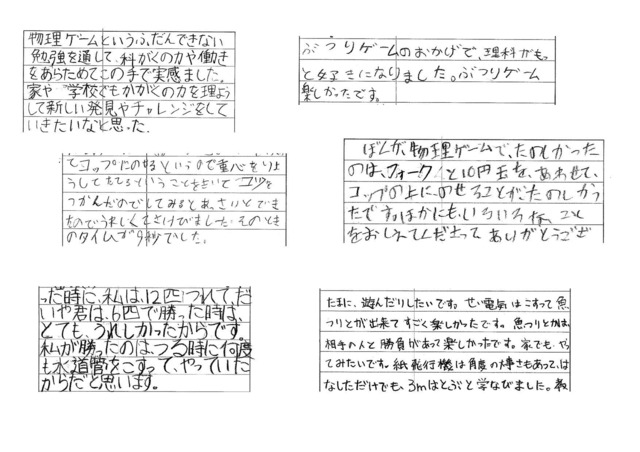 物理ゲームというふだんできない
勉強を通して、科がくの力や働き
をあらためてこの手で実感ました。
家や学校でもかがくの力を理よう
して新しい発見やチャレンジをして
いきたいなと思った.
ぶつりゲームのおかげで、理科がもっ
と好きになりました。ぶつりゲーム
楽しかったです。
てコップにのせるというので重心をりよ
うしてたてるということをきいてコツを
つかんだのでしてみるとあっさいとでき
たのでうれしくてさけびました。そのとき
のタイムが9秒でした。
ぼんが、物理ゲームで、たのしかった
のは、フォークと10円玉を、あわせて、
コップの上に、のせることが、たのしかっ
たです。ほかにも、いろいろな、こと
をおしえてくださって ありがとうござ
った時に、私は、12匹つれて、だ
いや君は、6匹で勝った時は、
とても、うれしかったからです。
私が勝ったのは、つる時に何度
も水道管をこすって、やっていた
からだと思います。
たまに、遊んだりしたいです。せい電気はこすって魚
つりとが出来てすごく楽しかったです。魚つりとかは、
相手の人と勝負があって楽しかったです。家でも、やっ
てみたいです。紙飛行機は角度の大事さもあって、は
なしただけでも、3mはとぶと学なびました。教